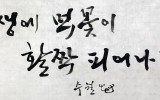 생에 먹꽃이
활짝 피어나